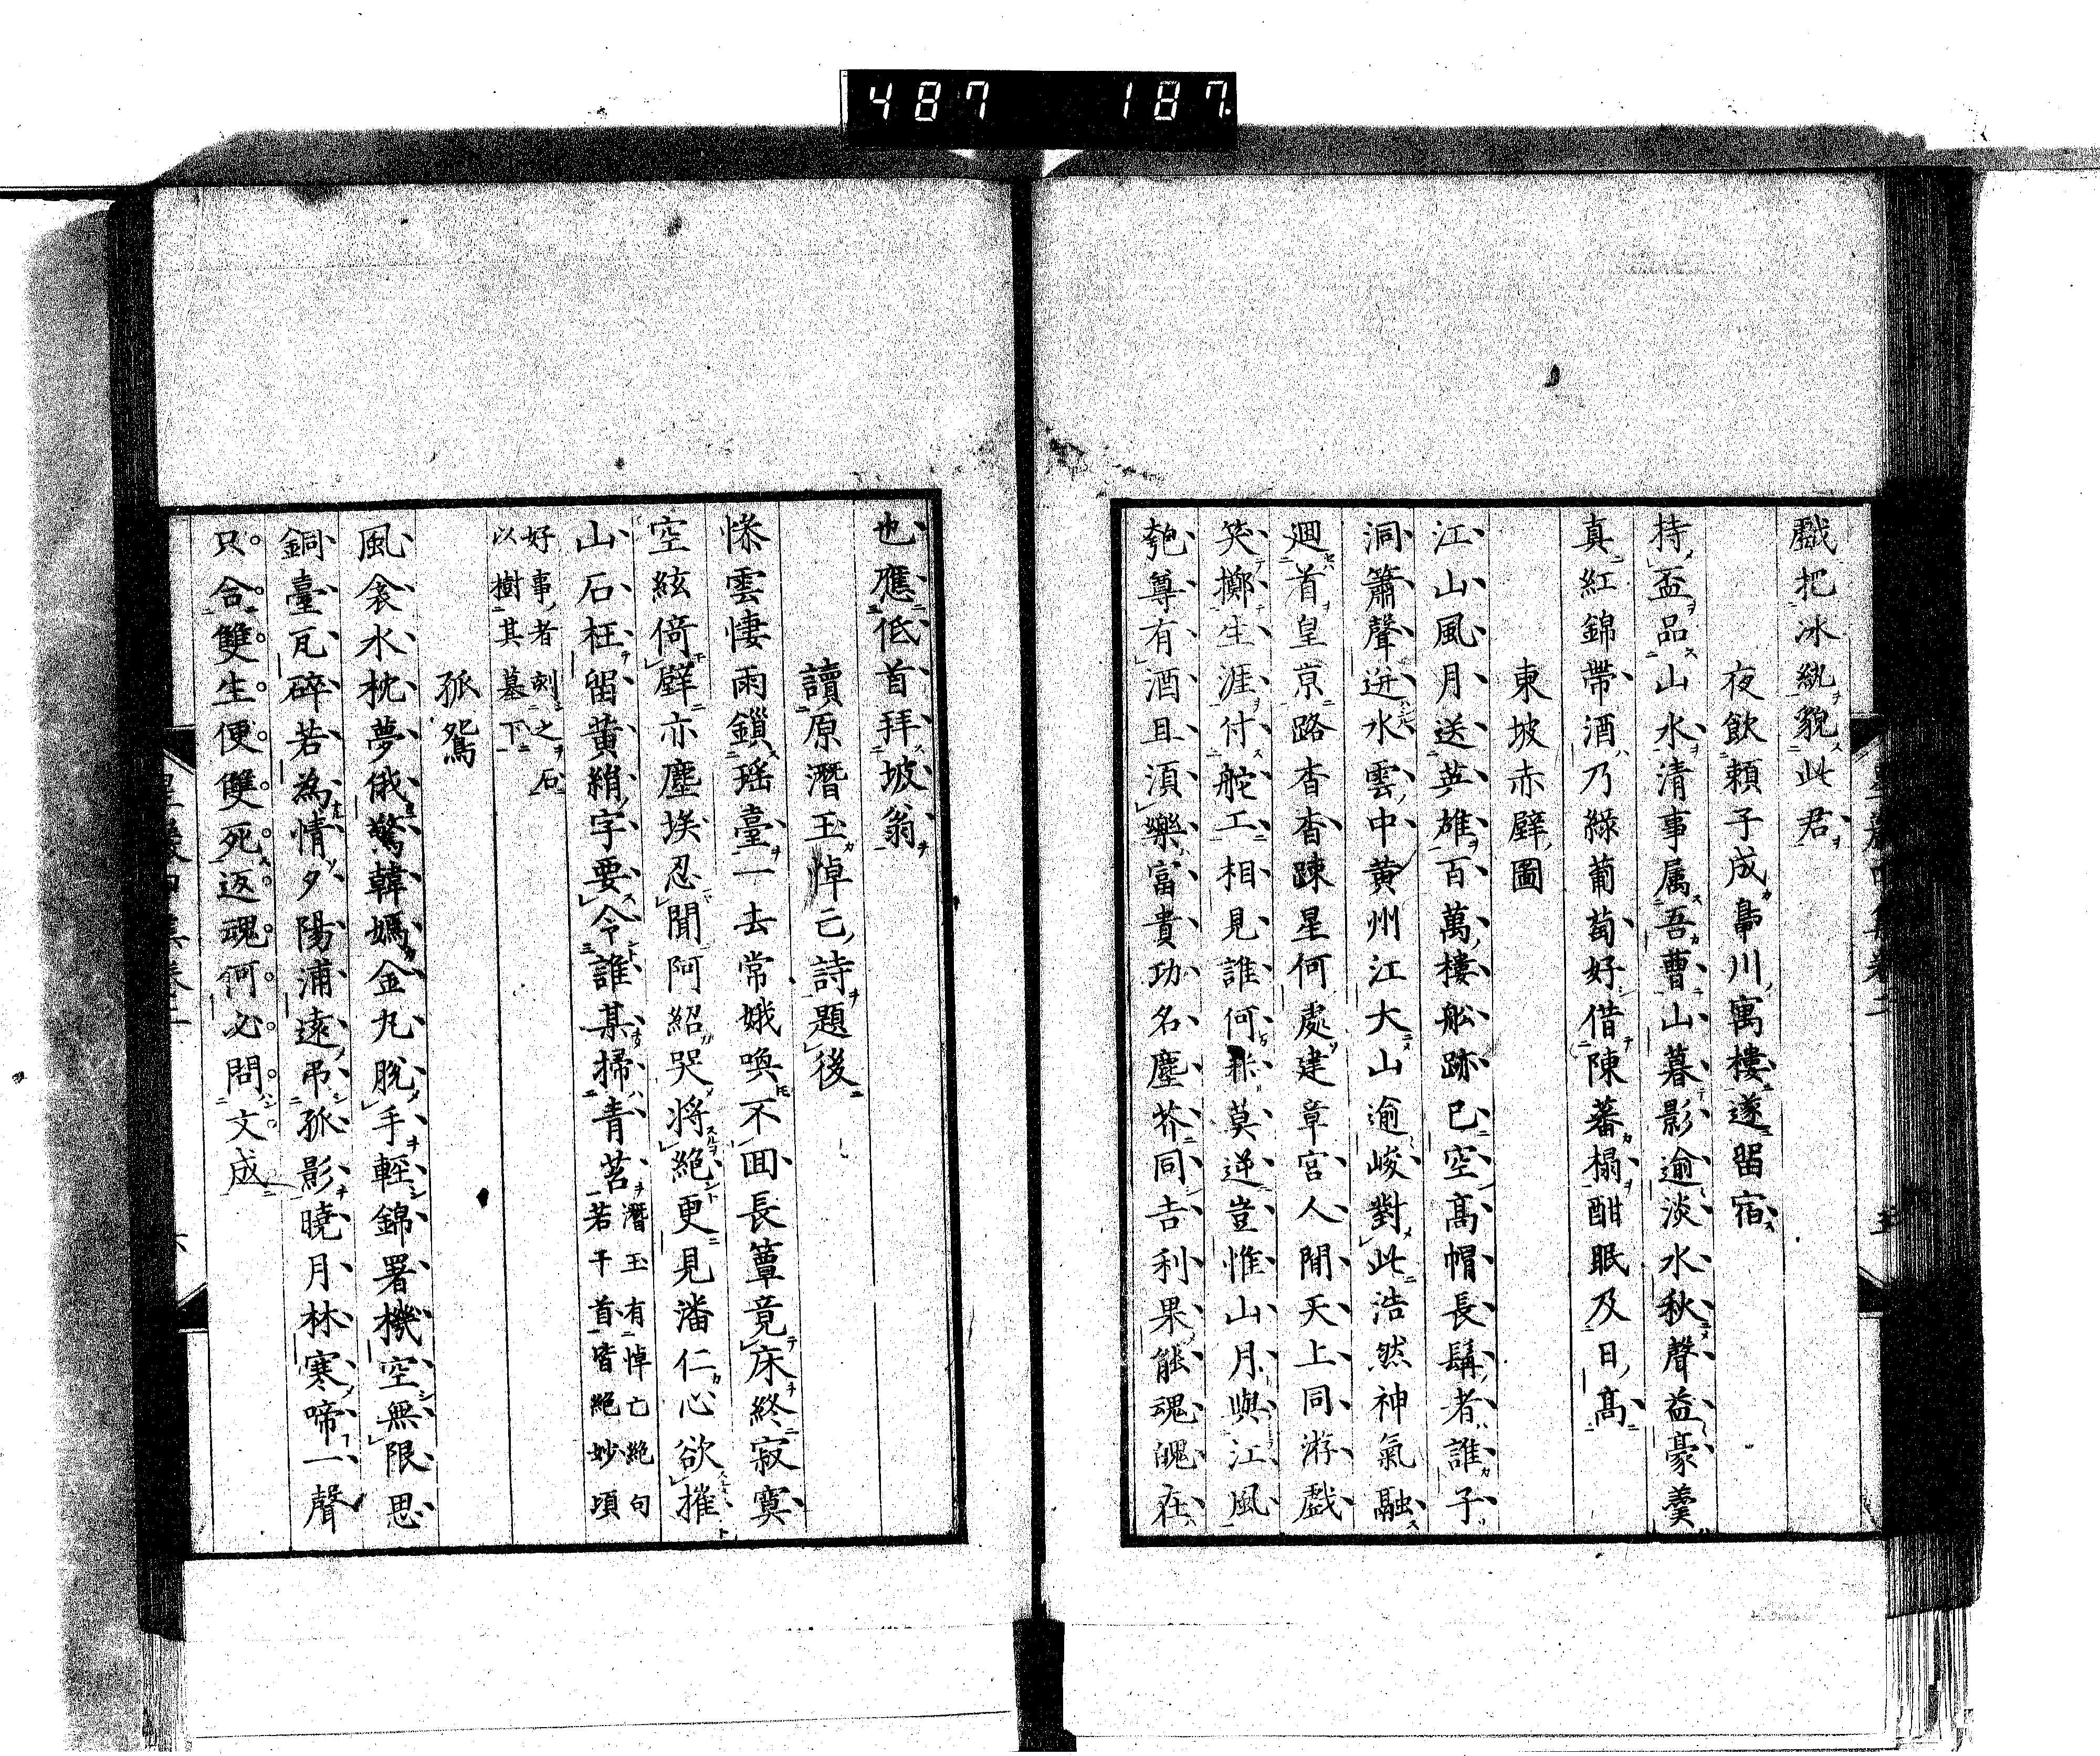 487 187
戲把冰紈貌此君
夜飮賴子成鼎川寓樓遂留宿
持盃品山水清事属吾曹山暮影逾淡水秋聲益豪羹
真紅錦帶酒乃綠葡萄好借陳蕃榻酣眠及日高
東坡赤壁圖
江山風月送英雄百萬樓船跡已空高帽長鬚者誰子
洞簫聲迸水雲中黄州江大山逾峻對此浩然神氣融
廻首皇京路杳杳踈星何處建章宮人間天上同游戲
笑擲生涯付舵工相見誰何莫逆豈惟山月與江風
匏尊有酒且須樂富貴功名塵芥同吉利果能魂魄在
也應低首拜坡翁
讀原潛玉悼亡詩題後
慘雲悽雨鎖瑤臺一去常娥喚不囬長簟竟床終寂寞
空絃倚壁亦塵埃忍聞阿紹哭將絶更見潘仁心欲摧
山石枉留黄絹字要令誰某掃青苔
潛玉有悼亡絶句
若干首皆絶妙頃
好事者刻之石
以樹其墓下
孤鴛
風衾水枕夢俄驚韓嫣金丸脫手輕錦署機空無限思
銅臺瓦碎若為情夕陽浦遠吊孤影曉月林寒啼一聲
只合雙生便雙死返魂何必問文成